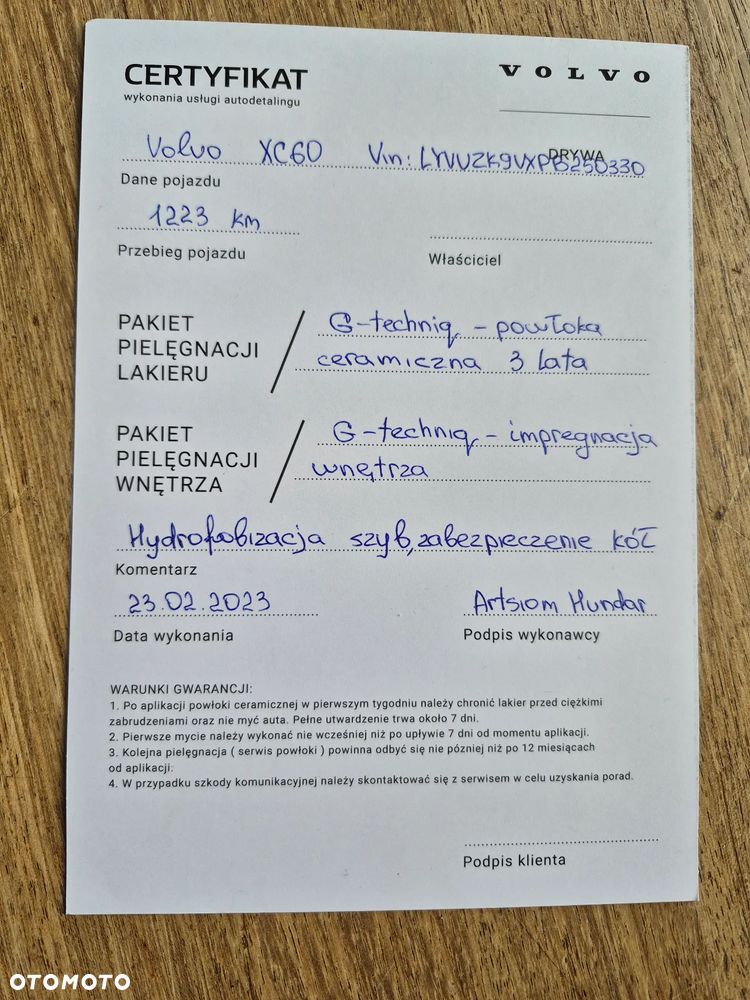 CERTYFIKAT
wykonania usługi autodetalingu
VOLVO
DRYWA
Volvo XC60 Vin: LYVUZK9VXPB250330
Dane pojazdu
1223 km
Przebieg pojazdu
Właściciel
PAKIET
PIELĘGNACJI
LAKIERU
G-techniq - powłoka
ceramiczna 3 lata
PAKIET
PIELĘGNACJI
WNĘTRZA
G-techniq - impregnacja
wnętrza
Hydrofobizacja szyb, zabezpieczenie kół
Komentarz
23.02.2023
Data wykonania
Artsiom Hundar
Podpis wykonawcy
WARUNKI GWARANCJI:
1. Po aplikacji powłoki ceramicznej w pierwszym tygodniu należy chronić lakier przed ciężkimi
zabrudzeniami oraz nie myć auta. Pełne utwardzenie trwa około 7 dni.
2. Pierwsze mycie należy wykonać nie wcześniej niż po upływie 7 dni od momentu aplikacji.
3. Kolejna pielęgnacja ( serwis powłoki ) powinna odbyć się nie pózniej niż po 12 miesiącach
od aplikacji.
4. W przypadku szkody komunikacyjnej należy skontaktować się z serwisem w celu uzyskania porad.
Podpis klienta
OTOMOTO